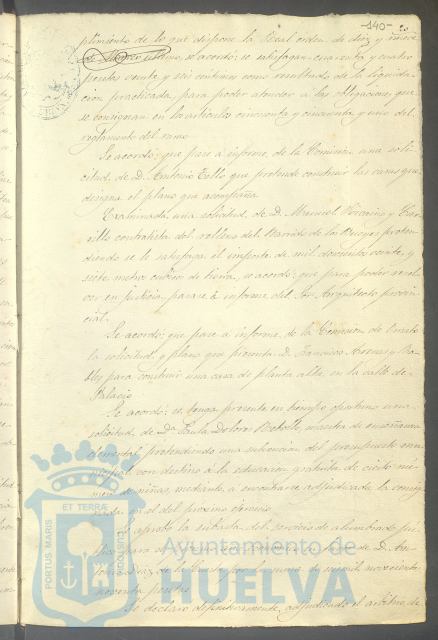 -140-
plimiento de lo que dispone la Real orden de diez y nueve
de Marzo ultimo, se acordó: se satisfagan cuarenta y cuatro
pesetas veinte y seis centimos como resultado de la liquida-
cion practicada, para poder atender á las obligaciones que
se consignan en los articulos cincuenta y cincuenta y uno del
reglamento del ramo.
Se acordó: que pase á informe, de la Comision una soli-
citud, de D. Antonio Tello que pretende construir las casas que
designa el plano que acompaña.
Examinada una solicitud, de D. Manuel
contratista del relleno del
diendo se le satisfaga el importe de mil doscientos veinte y
siete metros cubicos de tierra, se acordó: que para poder resol-
ver en justicia, pasase á informe del Sor. Arquitecto provin-
cial.
Se acordó: que pase á informe, de la Comision de Ornato
la solicitud y plano que presenta D. Francisco
para construir una casa de planta alta en la calle de
Palacio.
Se acordó: se tenga presente en tiempo oportuno una
solicitud, de Da. Paula Dolores Rebollo, maestra de enseñanza
elemental, pretendiendo una subvencion del presupuesto mu-
nicipal con destino á la educacion gratuita de cierto nu-
mero de niñas, mediante, á encontrarse adjudicada la consig-
nada en el del proximo ejercicio.
Se aprobó la subasta del servicio de alumbrado pú-
blico para
noventa pesetas.
Se declaró definitivamente, adjudicado el arbitrio de
PORTUS MARIS
ET TERRÆ
CUSTODIA
Ayuntamiento de
HUELVA